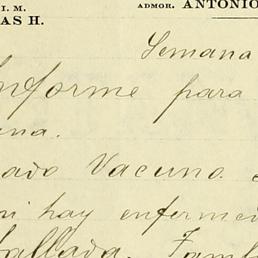 I. M.
AS H.
ADMOR. ANTONIO
Semana
nforme para
na.
ado Vacuno
ni hay enfermed
allada. Tamb